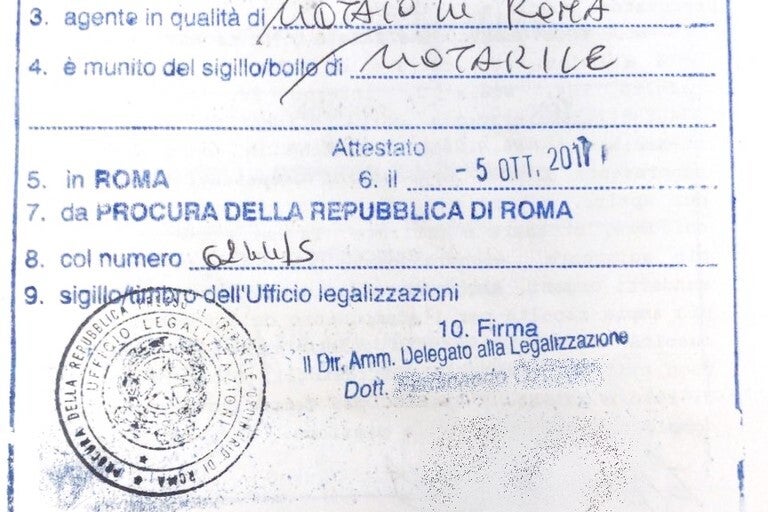 3. agente in qualità di NOTAIO IN ROMA
4. è munito del sigillo/bollo di NOTARILE
Attestato
5. in ROMA
6. il - 5 OTT. 2017
7. da PROCURA DELLA REPUBBLICA DI ROMA
8. col numero
9. sigillo/timbro dell'Ufficio legalizzazioni
10. Firma
Il Dir. Amm. Delegato alla Legalizzazione
Dott.
PROCURA DELLA REPUBBLICA TRIBUNALE ORDINARIO DI ROMA
UFFICIO LEGALIZZAZIONI